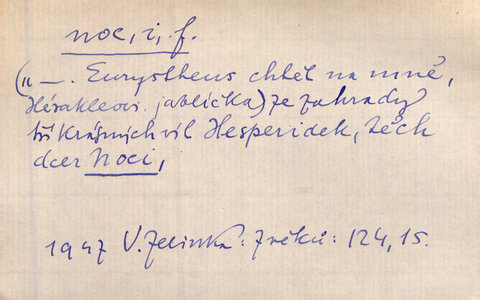 noc, i, f.
(„ —. Eurystheus chtěl na mně,
Hérakleovi jablíčka) ze zahrady
tří krásných vil Hesperidek, těch
dcer Noci,
1947 V. Zelinka: Z řeků: 124, 15.